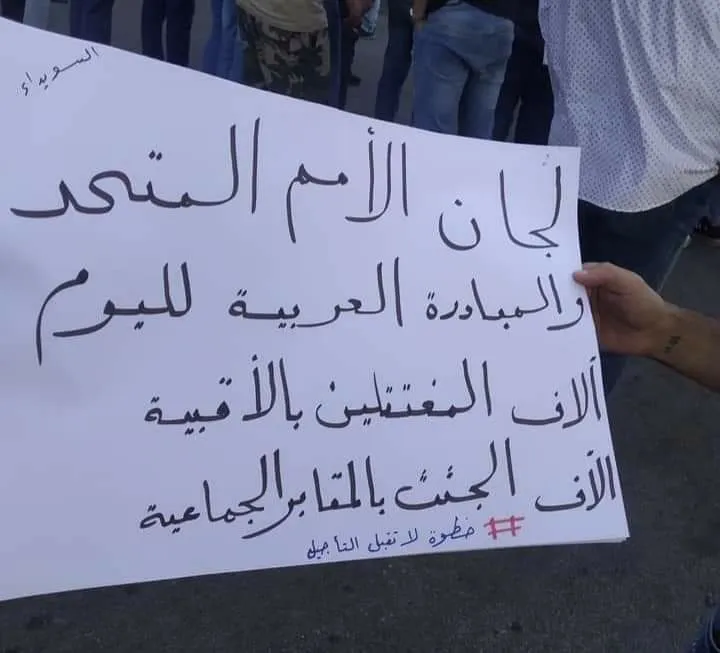 السويداء
لجان الأمم المتحد
والمبادرة العربية لليوم
ألاف المغتتلين بالأقبية
الأف الجثث بالمقابر الجماعية
# خطوة لا تقبل التأجيل